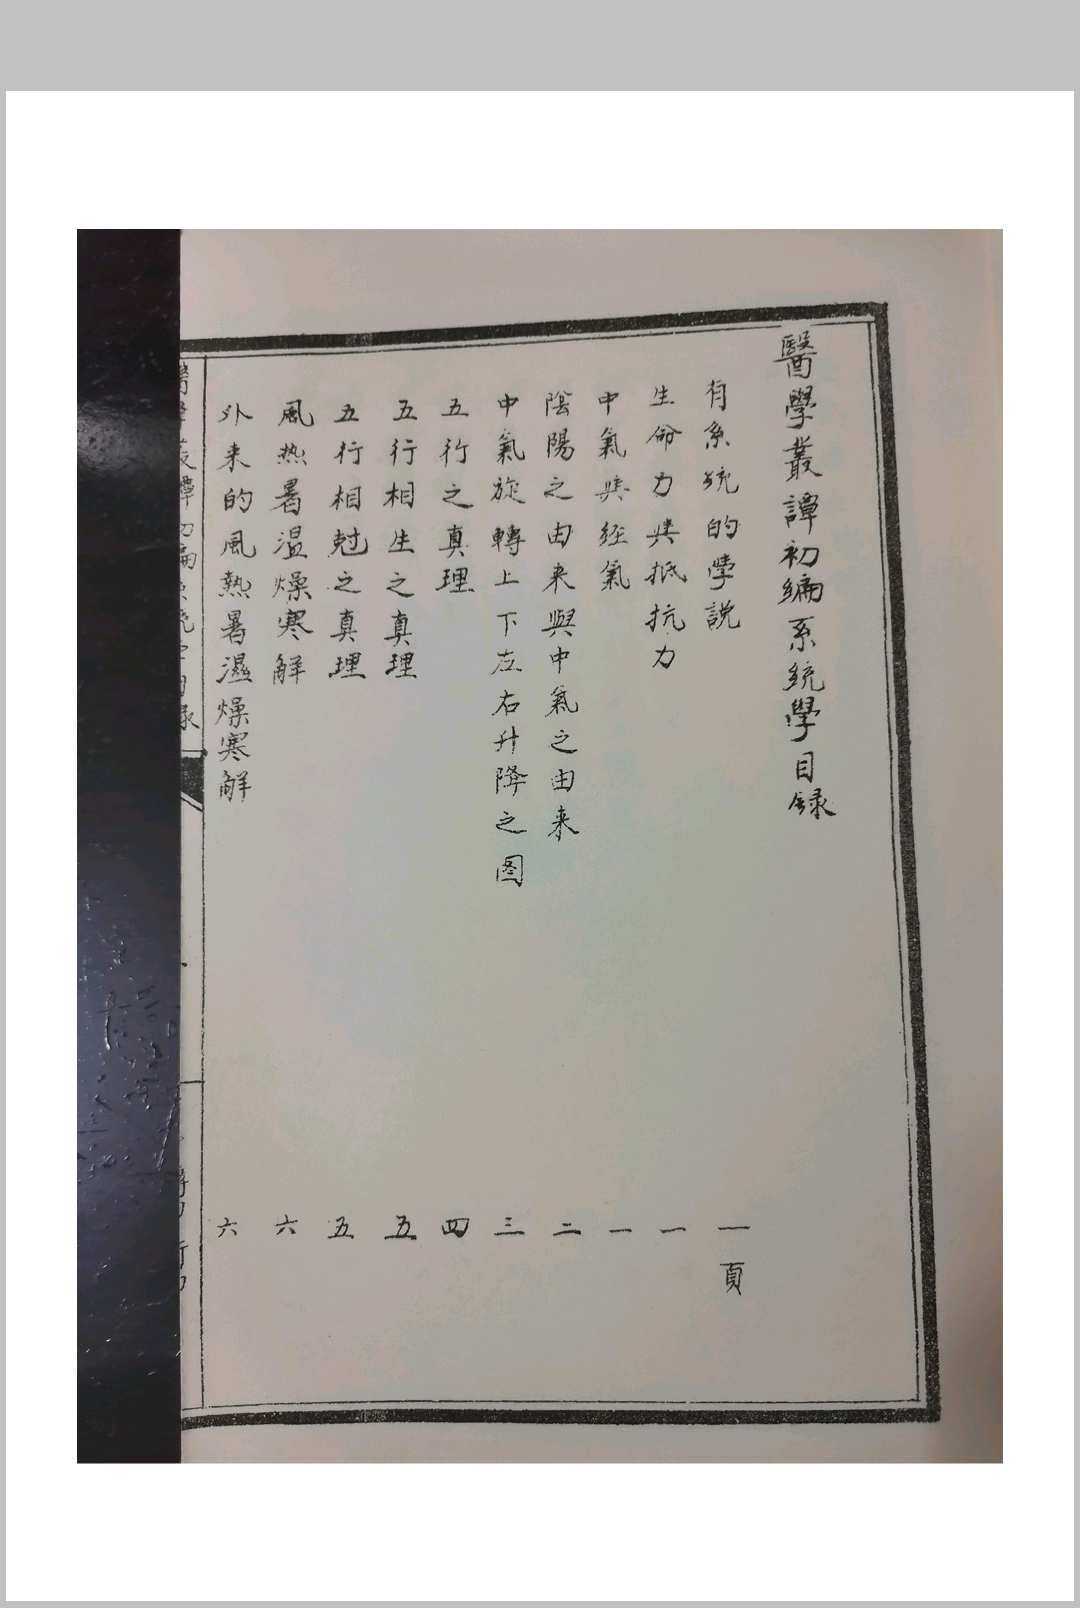 醫學叢譚初編系統學目録
有系統的學説 一頁
生命力與抵抗力 一
中氣與經氣 一
陰陽之由来與中氣之由来 二
中氣旋轉上下左右升降之圖 三
五行之真理 四
五行相生之真理 五
五行相尅之真理 五
風热暑温燥寒解 六
外来的風熱暑濕燥寒解 六